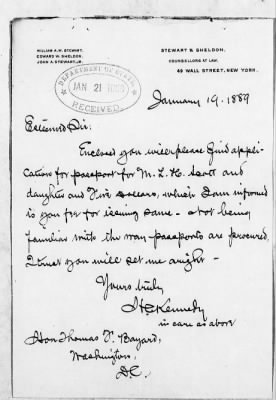 WILLIAM A.W. STEWART.
EDWARD W. SHELDON.
JOHN A. STEWART, JR.
STEWART & SHELDON,
COUNSELLORS AT LAW,
49 WALL STREET, NEW YORK.
DEPARTMENT OF STATE
JAN 21 1889
RECEIVED
January 19. 1889
Esteemed Sir:
Enclosed you will please find appli-
cation for passport for M. L. H. Scott and
daughter and Five dollars, which I am informed
is your fee for issuing same - not being
familiar with the way passports are procured
I trust you will set me aright -
Yours truly
Kennedy
in care as above
Hon Thomas F. Bayard,
Washington,
D.C.